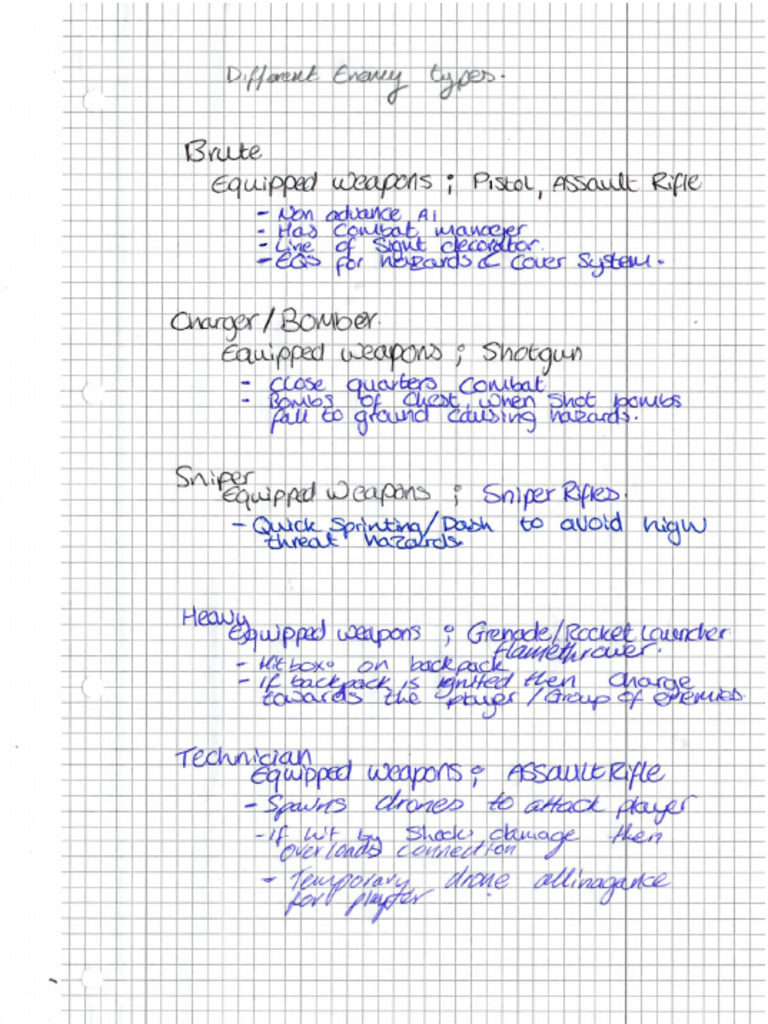 Different Enemy types.
Brute
Equipped weapons ; Pistol, Assault Rifle
- Non advance AI
- Has Combat manager
- Line of Sight decorator.
- EQS for hazards & Cover System.
Charger/Bomber.
Equipped weapons ; Shotgun
- Close quarters Combat
- Bombs of Chest, when Shot bombs
fall to ground causing hazards.
Sniper
Equipped Weapons ; Sniper Rifles.
- Quick Sprinting/Dash to avoid high
threat hazards.
Heavy
Equipped weapons ; Grenade/Rocket Launcher
flamethrower.
- Hitbox on backpack
- If backpack is ignited then Charge
towards the player/Group of enemies.
Technician
Equipped weapons ; Assault Rifle
- Spawns drones to attack player
- If hit by Shock damage then
overloads connection
- Temporary drone
for